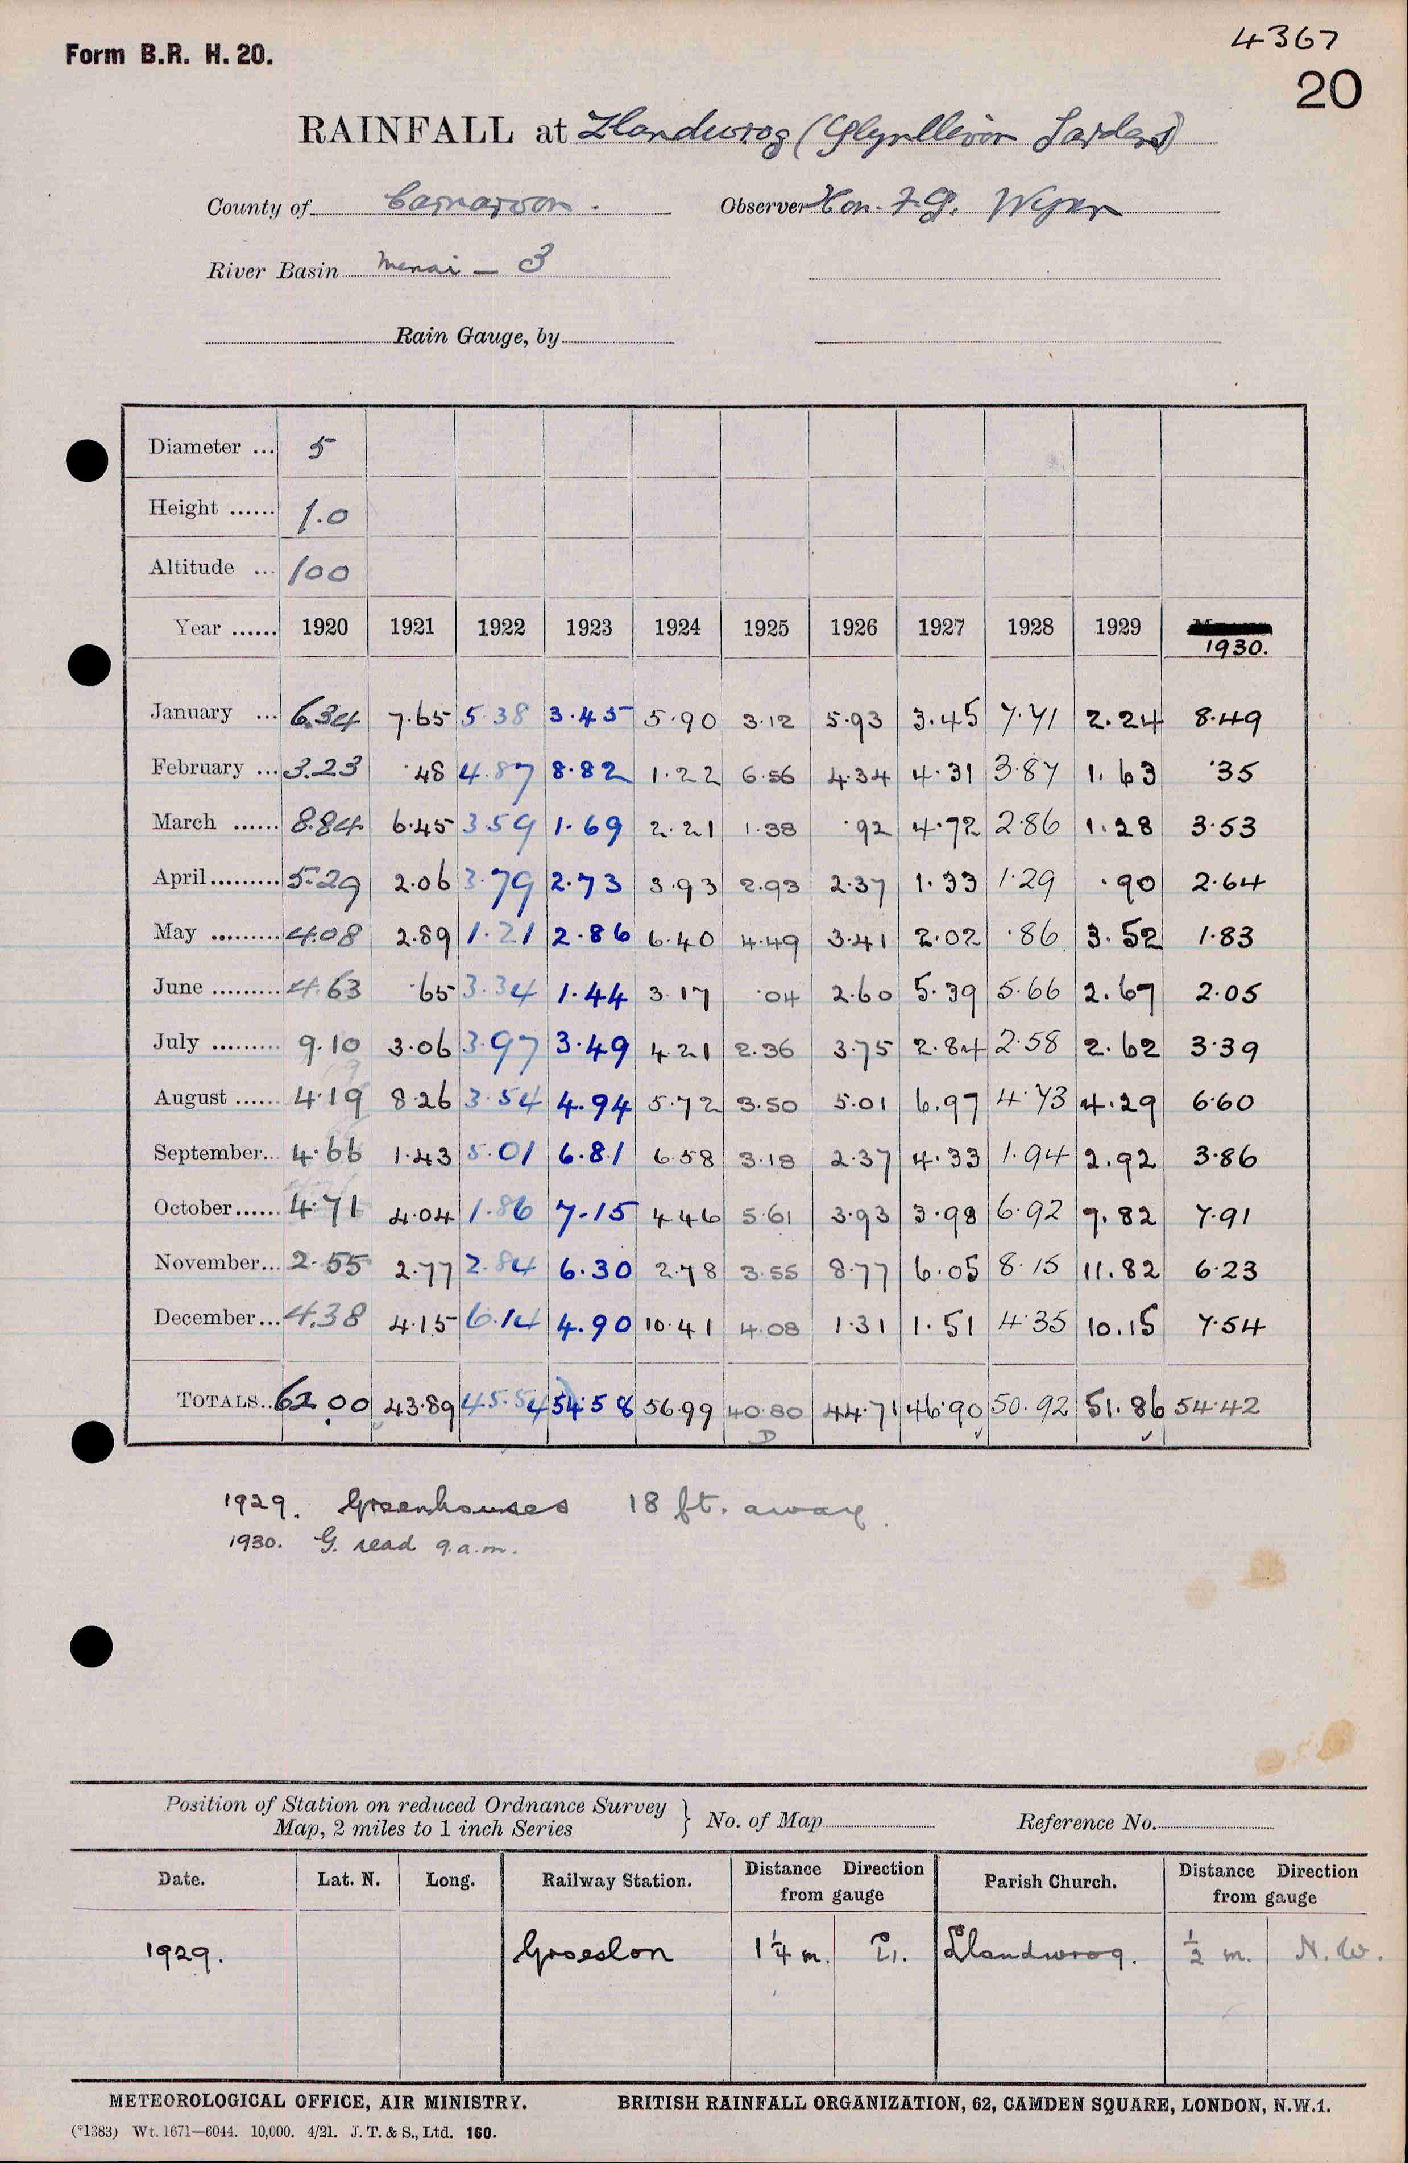 4367
Form B.R. H. 20.
20
RAINFALL at Llandwrog (Glynllivon Gardens)
County of Carnarvon. Observer Hon. F. G. Wynn
River Basin Menai - 3
Rain Gauge, by
Diameter ... 5
Height ...... 1.0
Altitude ... 100
Year ...... 1920 1921 1922 1923 1924 1925 1926 1927 1928 1929 1930.
January ... 6.34 7.65 5.38 3.45 5.90 3.12 5.93 3.45 7.71 2.24 8.49
February ... 3.23 .48 4.87 8.82 1.22 6.56 4.34 4.31 3.87 1.63 .35
March ...... 8.84 6.45 3.59 1.69 2.21 1.38 .92 4.72 2.86 1.28 3.53
April ......... 5.29 2.06 3.79 2.73 3.93 2.93 2.37 1.33 1.29 .90 2.64
May ......... 4.08 2.89 1.21 2.86 6.40 4.49 3.41 2.02 .86 3.52 1.83
June ......... 4.63 .65 3.34 1.44 3.17 .04 2.60 5.39 5.66 2.67 2.05
July ......... 9.10 3.06 3.97 3.49 4.21 2.36 3.75 2.84 2.58 2.62 3.39
August ...... 4.19 8.26 3.54 4.94 5.72 3.50 5.01 6.97 4.73 4.29 6.60
September... 4.66 1.43 5.01 6.81 6.58 3.18 2.37 4.33 1.94 2.92 3.86
October...... 4.71 4.04 1.86 7.15 4.46 5.61 3.93 3.98 6.92 7.82 7.91
November... 2.55 2.77 2.84 6.30 2.78 3.55 8.77 6.05 8.15 11.82 6.23
December... 4.38 4.15 6.14 4.90 10.41 4.08 1.31 1.51 4.35 10.15 7.54
TOTALS.. 62.00 43.89 45.54 54.58 56.99 40.80 44.71 46.90 50.92 51.86 54.42
D
1929. Greenhouses 18 ft. away.
1930. G. read 9.a.m.
Position of Station on reduced Ordnance Survey
Map, 2 miles to 1 inch Series } No. of Map Reference No.
Date. Lat. N. Long. Railway Station. Distance Direction from gauge Parish Church. Distance Direction from gauge
1929. Groeslon 1 1/4 m. E. Llandwrog. 1/2 m. N.W.
METEOROLOGICAL OFFICE, AIR MINISTRY. BRITISH RAINFALL ORGANIZATION, 62, CAMDEN SQUARE, LONDON, N.W.1.
(*1383) Wt. 1671—6044. 10,000. 4/21. J. T. & S., Ltd. 160.